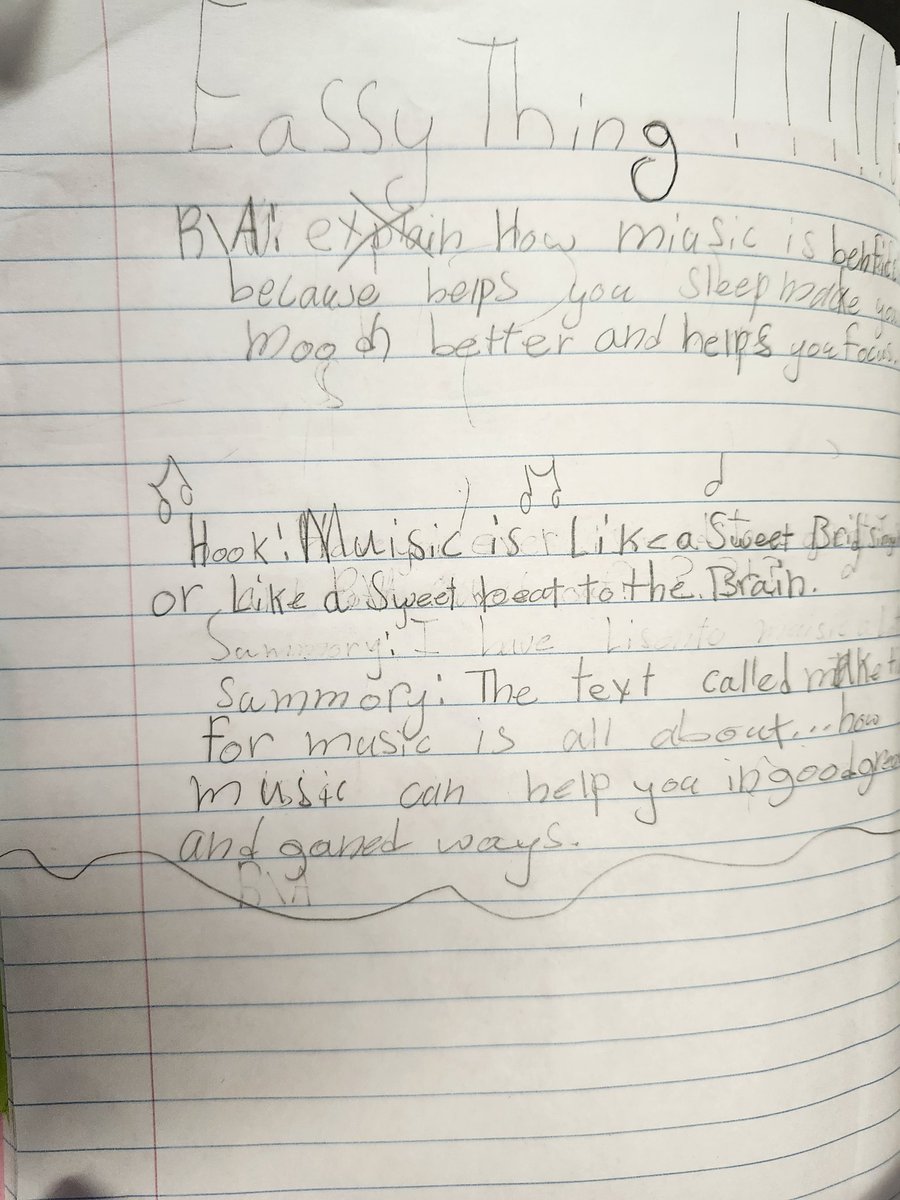 Eassy Thing !!!!!!
B\A: explain How miusic is
because helps you sleep make you
mood better and helps you focus.
Hook: Muisic is Like a Sweet
or Like a Sweet beat to the Brain.
Sammory: I have
Sammory: The text called
for music is all about...how
music can help you in good
and ganed ways.
B\A